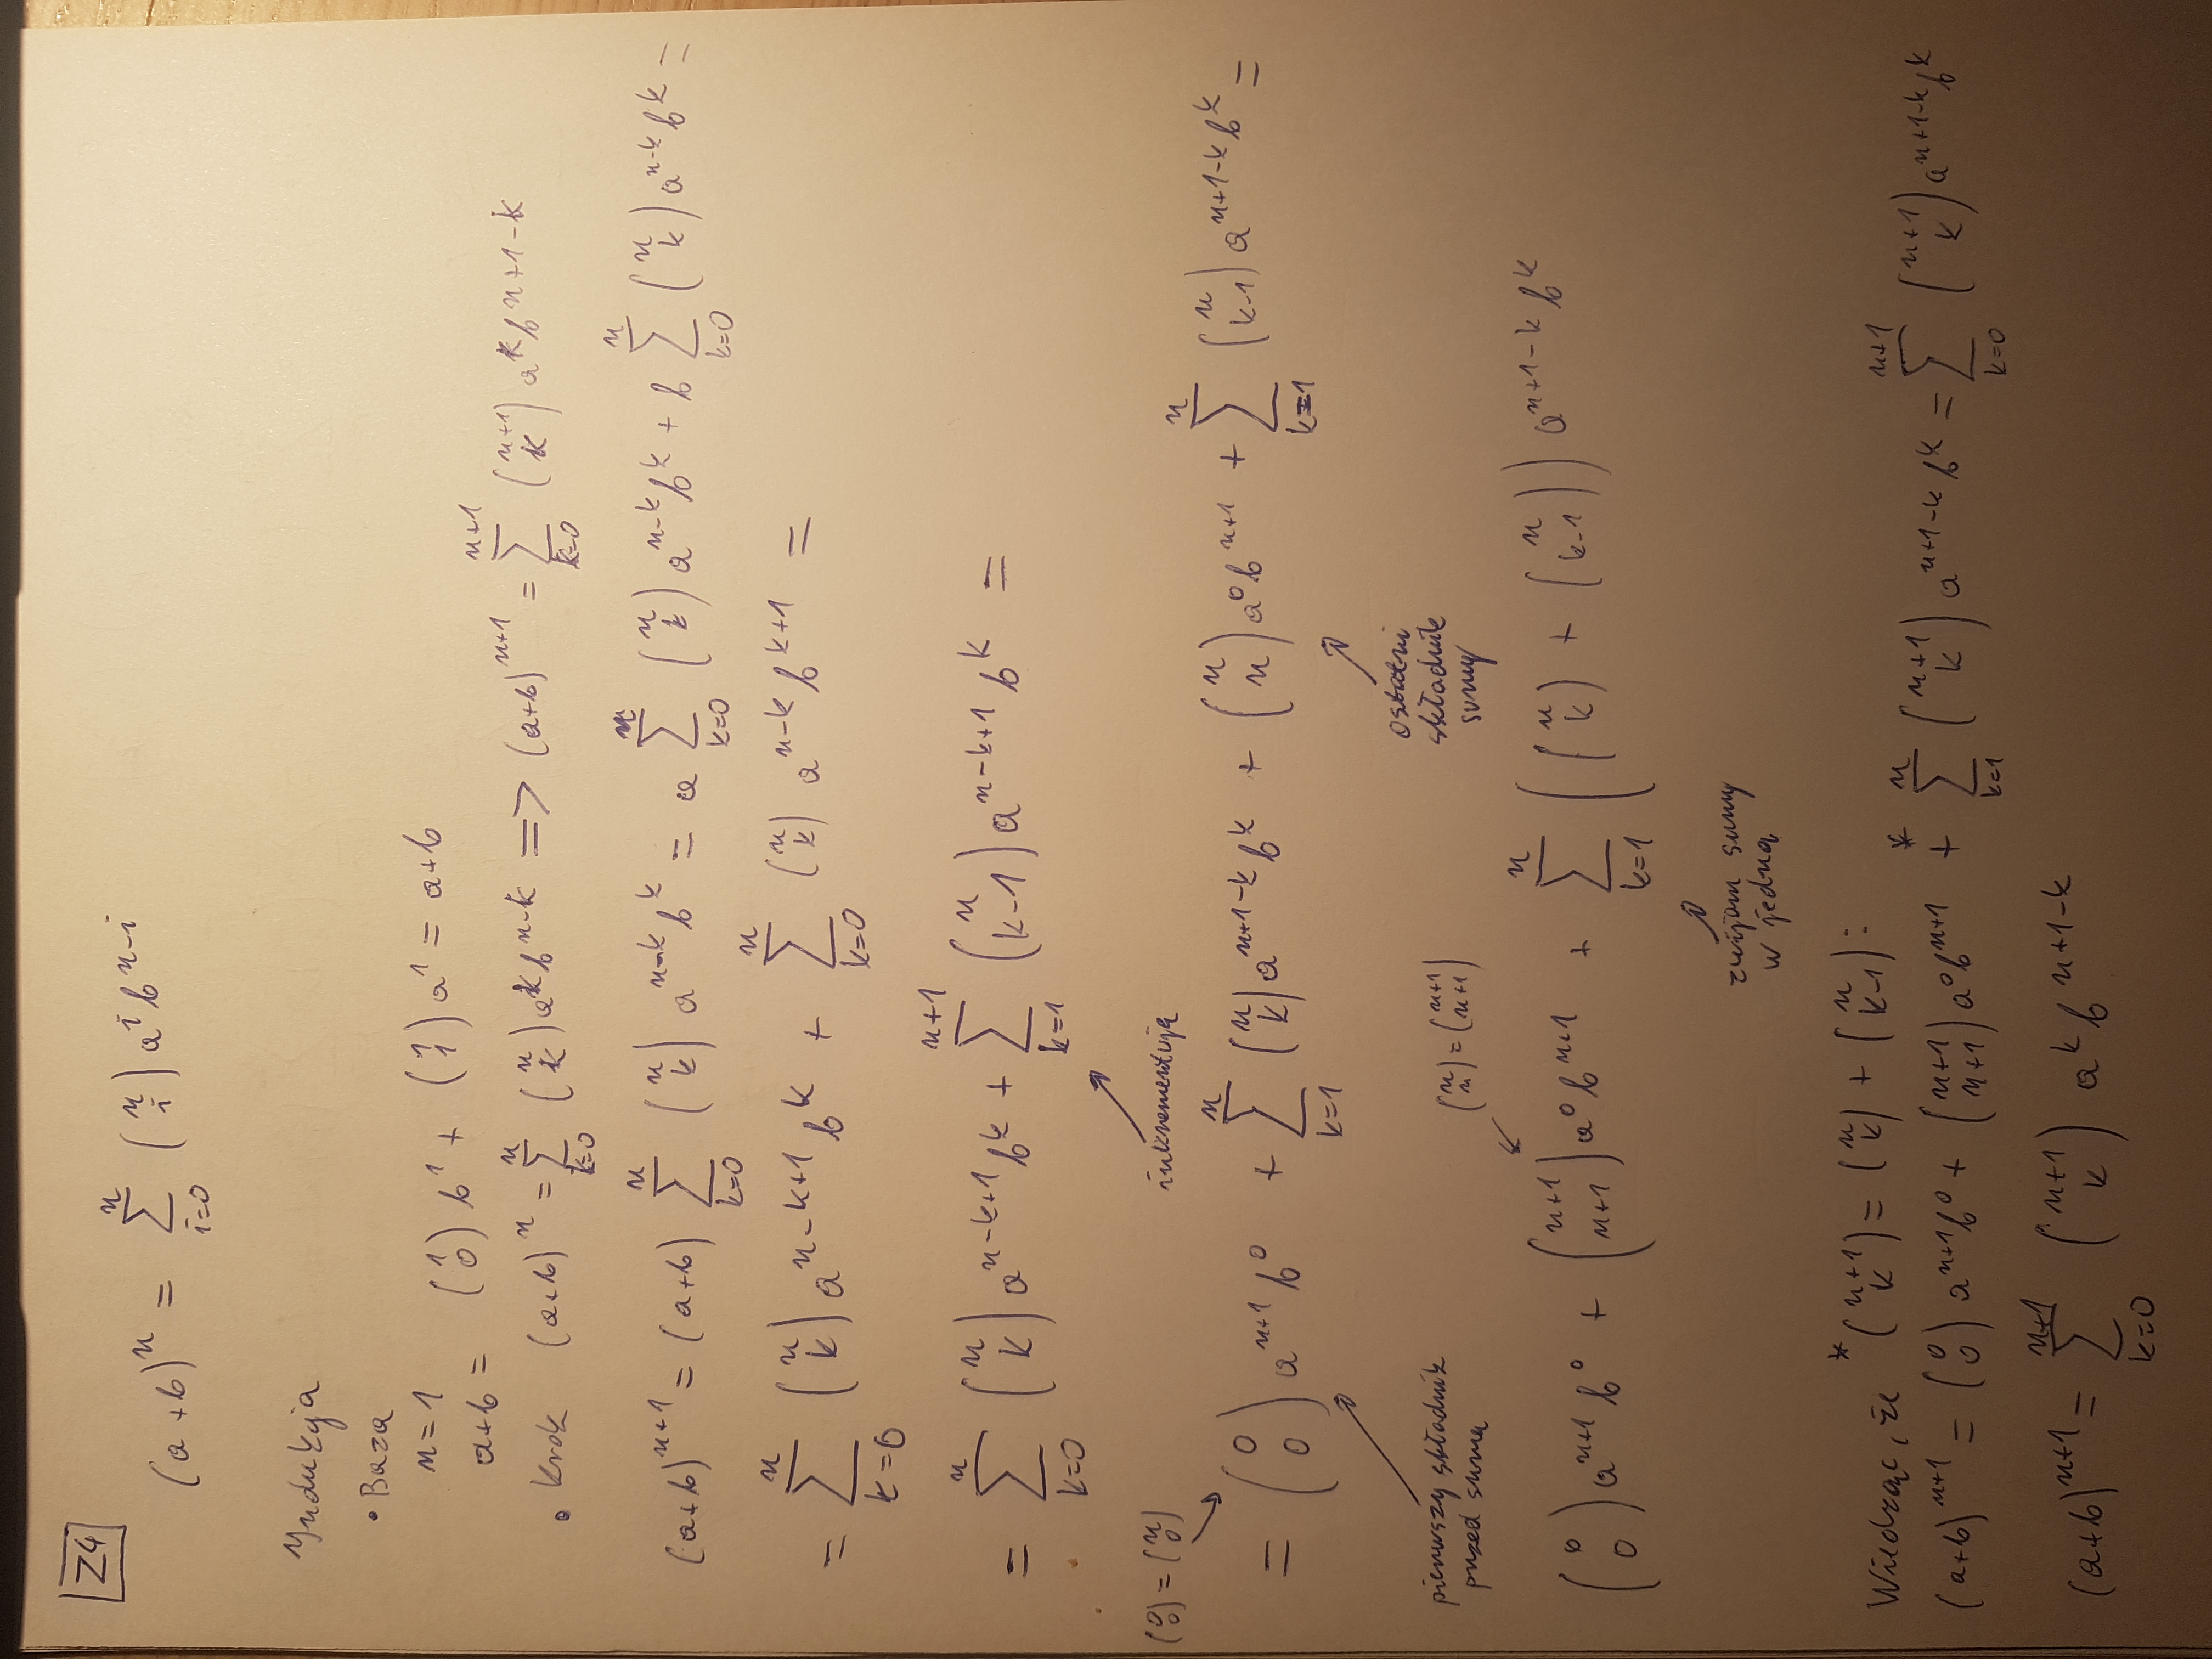 Z4
(a+b)^n = \sum_{i=0}^{n} \binom{n}{i} a^i b^{n-i}
Indukcja
• Baza
n=1
a+b = \binom{1}{0} b^1 + \binom{1}{1} a^1 = a+b
• Krok (a+b)^n = \sum_{k=0}^{n} \binom{n}{k} a^k b^{n-k} => (a+b)^{n+1} = \sum_{k=0}^{n+1} \binom{n+1}{k} a^k b^{n+1-k}
(a+b)^{n+1} = (a+b) \sum_{k=0}^{n} \binom{n}{k} a^{n-k} b^k = a \sum_{k=0}^{n} \binom{n}{k} a^{n-k} b^k + b \sum_{k=0}^{n} \binom{n}{k} a^{n-k} b^k =
= \sum_{k=0}^{n} \binom{n}{k} a^{n-k+1} b^k + \sum_{k=0}^{n} \binom{n}{k} a^{n-k} b^{k+1} =
= \sum_{k=0}^{n} \binom{n}{k} a^{n-k+1} b^k + \sum_{k=1}^{n+1} \binom{n}{k-1} a^{n-k+1} b^k =
inkrementuję
\binom{0}{0} = \binom{n}{0}
= \binom{0}{0} a^{n+1} b^0 + \sum_{k=1}^{n} \binom{n}{k} a^{n+1-k} b^k + \binom{n}{n} a^0 b^{n+1} + \sum_{k=1}^{n} \binom{n}{k-1} a^{n+1-k} b^k =
pierwszy składnik
przed sumą
ostatni
składnik
sumy
\binom{n}{n} = \binom{n+1}{n+1}
\binom{0}{0} a^{n+1} b^0 + \binom{n+1}{n+1} a^0 b^{n+1} + \sum_{k=1}^{n} \left( \binom{n}{k} + \binom{n}{k-1} \right) a^{n+1-k} b^k
zwijam sumy
w jedną
Wiedząc, że * \binom{n+1}{k} = \binom{n}{k} + \binom{n}{k-1} :
(a+b)^{n+1} = \binom{0}{0} a^{n+1} b^0 + \binom{n+1}{n+1} a^0 b^{n+1} +^* \sum_{k=1}^{n} \binom{n+1}{k} a^{n+1-k} b^k = \sum_{k=0}^{n+1} \binom{n+1}{k} a^{n+1-k} b^k
(a+b)^{n+1} = \sum_{k=0}^{n+1} \binom{n+1}{k} a^k b^{n+1-k}